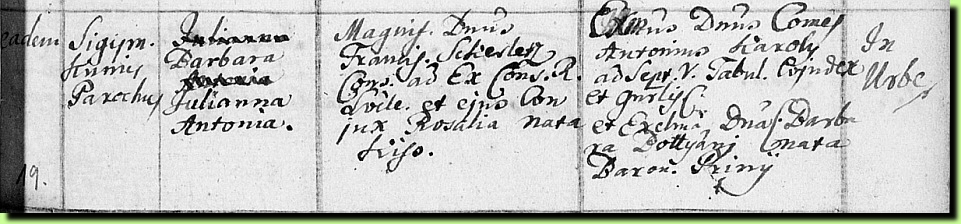 eadem
Sigism.
Kunics
Parochus
Julianna
Barbara
Antonia
Julianna
Antonia.
Magnif. Dnus
Francis.
Cons. ad Ex Cons. R.
et ejus Con
jux Rosalia nata
Kiso.
Exmus Dnus Comes
Antonius Karoly
ad Sept. V. Tabul. Cojudex
et
et Exelma Dna Barba
ra nata
Baron.
In
Urbe
19.